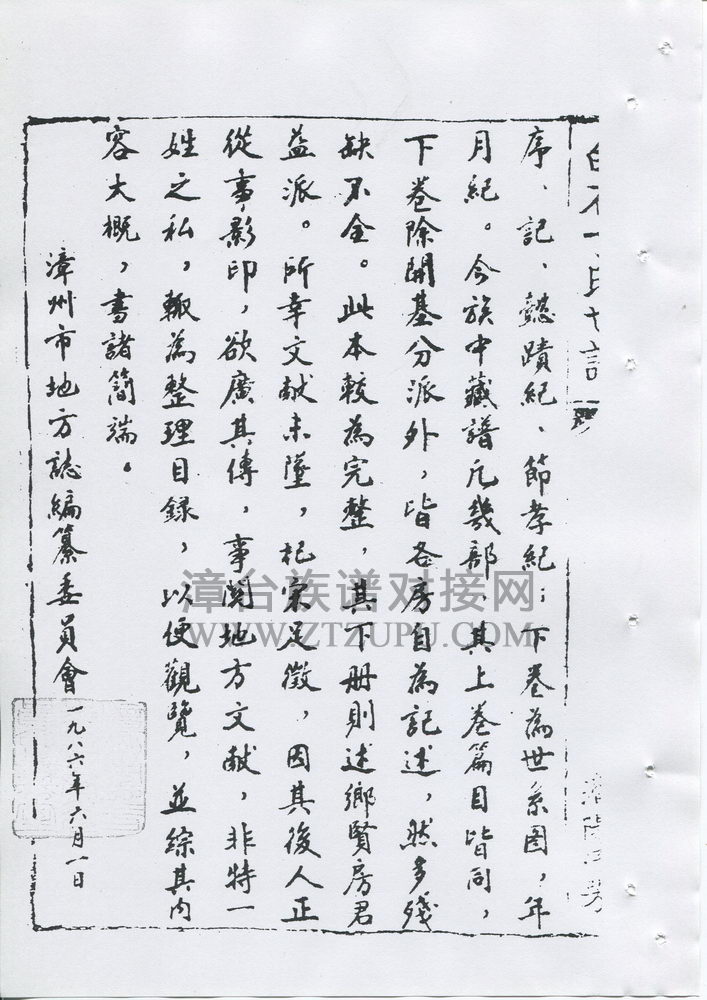 序、記、懿蹟紀、節孝紀；下卷為世系圖，年
月紀。今族中藏譜凡幾部，其上卷篇目皆同，
下卷除開基分派外，皆各房自為記述，然多殘
缺不全。此本較為完整，其下册則述鄉賢房君
益派。所幸文献未墜，杞宋足徵，因其後人正
從事影印，欲廣其傳，事関地方文献，非特一
姓之私，輙為整理目録，以便觀覽，並綜其内
容大概，書諸簡端。
漳州市地方誌編纂委員會一九八六年六月一日
漳台族谱对接网
WWW.ZTZUPU.COM